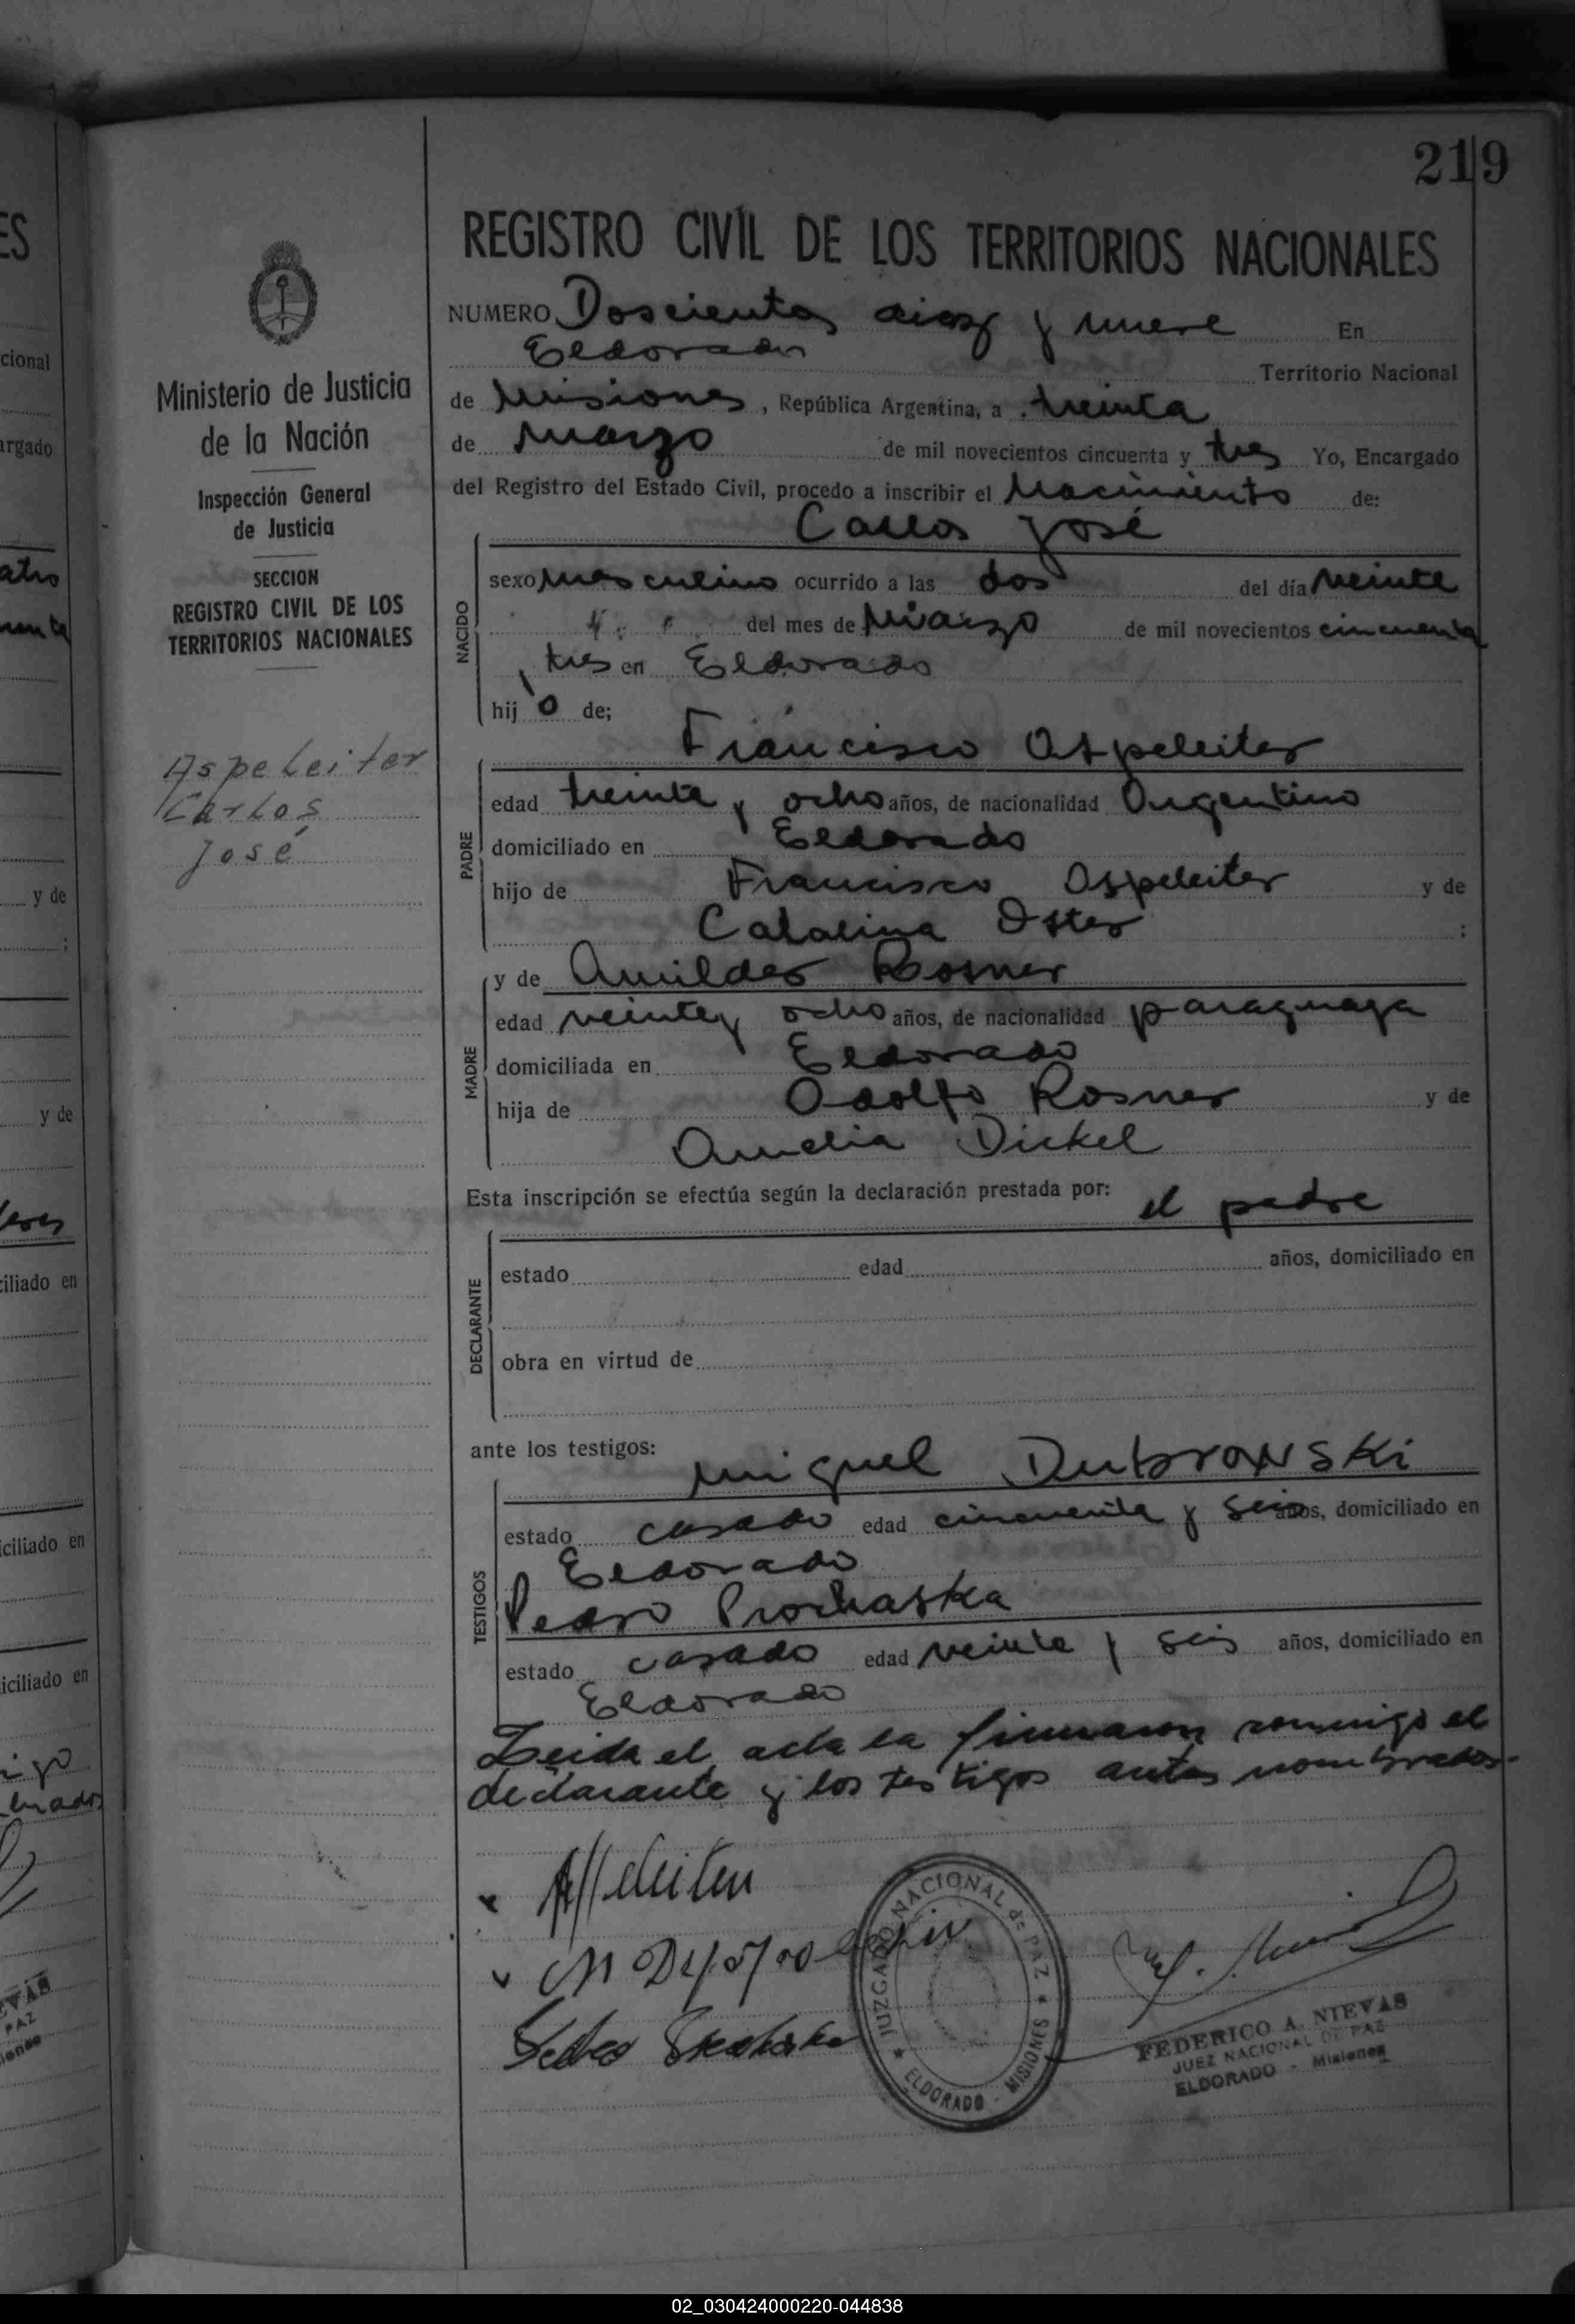 219
REGISTRO CIVIL DE LOS TERRITORIOS NACIONALES
NUMERO Doscientos diez y nueve En
Eldorado Territorio Nacional
de Misiones, República Argentina, a treinta
de marzo de mil novecientos cincuenta y tres Yo, Encargado
del Registro del Estado Civil, procedo a inscribir el Nacimiento de:
Carlos José
NACIDO
sexo masculino ocurrido a las dos del día veinte
del mes de Marzo de mil novecientos cincuenta
y tres en Eldorado
hijo de;
Francisco Aspeleiter
PADRE
edad treinta y ocho años, de nacionalidad Argentino
domiciliado en Eldorado
hijo de Francisco Aspeleiter y de
Catalina Oster ;
y de Amilder Rosner
MADRE
edad veinte y ocho años, de nacionalidad paraguaya
domiciliada en Eldorado
hija de Adolfo Rosner y de
Amelia Dickel
Esta inscripción se efectúa según la declaración prestada por: el padre
DECLARANTE
estado edad años, domiciliado en
obra en virtud de
ante los testigos: Miguel Dubrowski
TESTIGOS
estado casado edad cincuenta y seis años, domiciliado en
Eldorado
Pedro Prochaska
estado casado edad veinte y seis años, domiciliado en
Eldorado
Leida el acta la firmaron conmigo el
declarante y los testigos antes nombrados.-
JUZGADO NACIONAL de PAZ
ELDORADO - MISIONES
FEDERICO A. NIEVAS
JUEZ NACIONAL DE PAZ
ELDORADO - Misiones
Ministerio de Justicia
de la Nación
Inspección General
de Justicia
SECCION
REGISTRO CIVIL DE LOS
TERRITORIOS NACIONALES
Aspeleiter
Carlos
José
ES
cional
argado
y de
;
y de
ciliado en
iciliado en
iciliado en
02_030424000220-044838